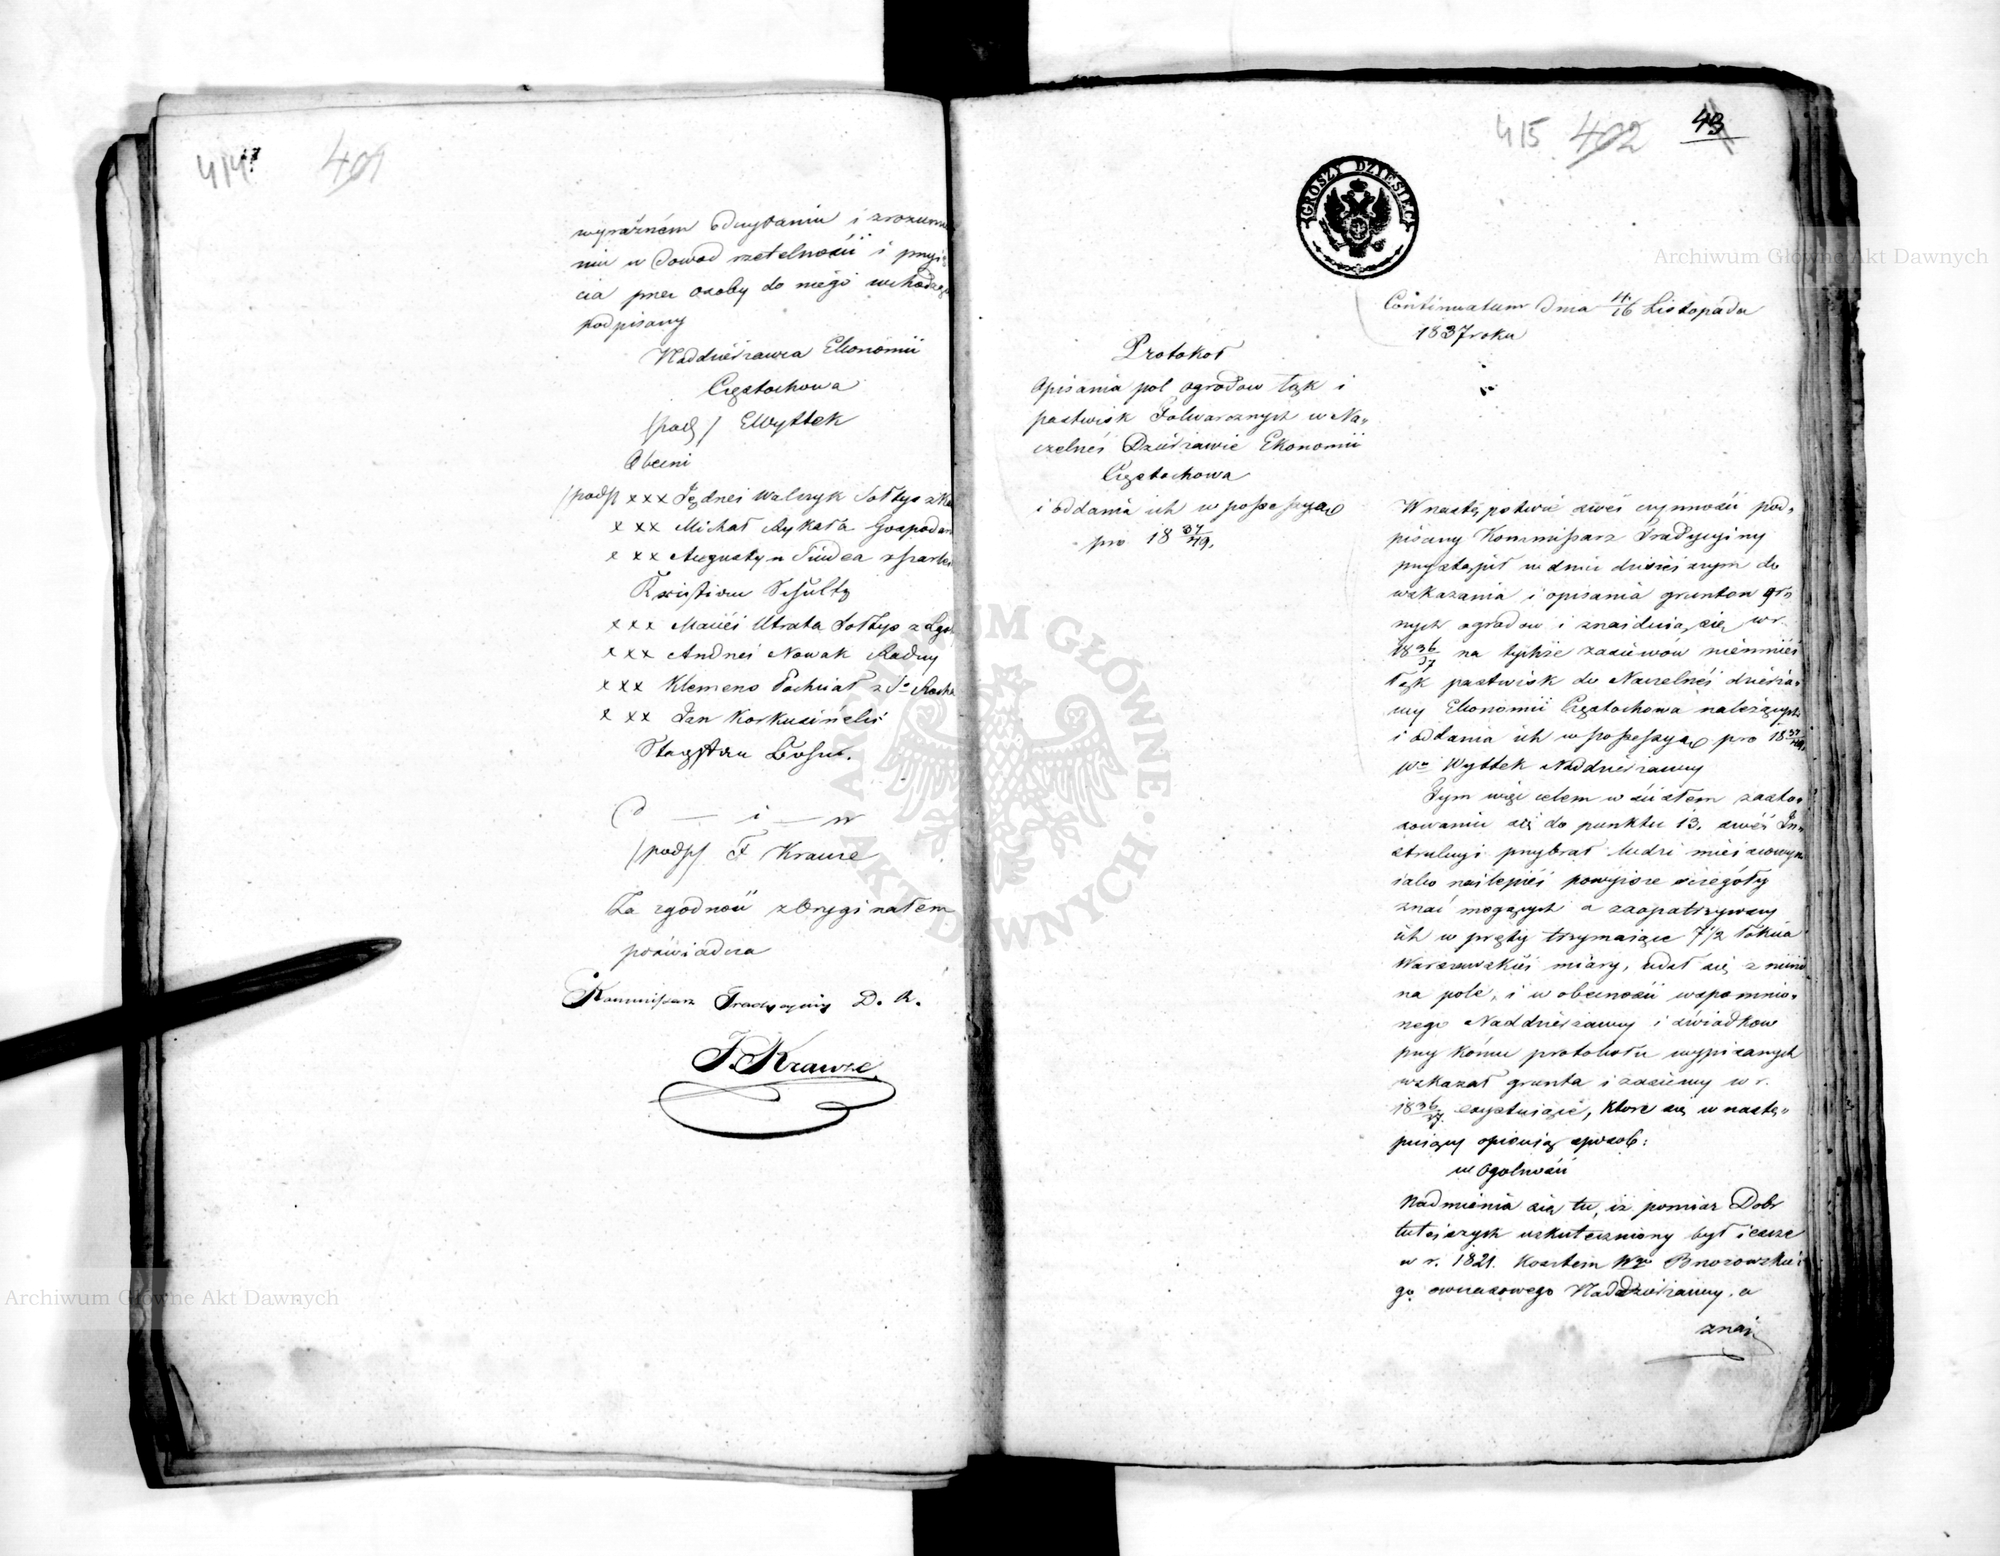 414
401
wyraźném odczytaniu i zrozumie
niu w dowod rzetelności i przyię
cia przez osoby do niego wchodzące
podpisany
Naddzierżawca Ekonomii
Częstochowa
/pod/ EWyttek
Obecni
/podp/ xxx Jędrzei Walczyk Sołtys z
xxx Michał Aykała Gospodarz
xxx Augustyn
Kristian Schultz
xxx Maciéi Utrata Sołtys z
xxx Andrzei Nowak Radny
xxx Klemens z So Rocha
xxx Jan
C — i — w
/podp/ F Krauze
Za zgodność z Oryginałem
poświadcza
Kommissarz Tradycyiny D. K.
F. Krauze
415 402 43
GROSZY DZIESIĘĆ
Continuatum dnia 4/16 Listopada
1837 roku
Protokoł
Opisania pol ogrodow łąk i
pastwisk Folwarcznych w Na-
czelnéi Dzierżawie Ekonomii
Częstochowa
i oddania ich w possessyą
pro 18 37/49.
W następstwie swéi czynności pod-
pisany Kommissarz Tradycyiny
przystąpił w dniu dzisieiszym do
wskazania i opisania gruntow or-
nych ogrodow i znaiduią się w r.
1836/37 na tychże zasiewow niemniéi
łąk pastwisk do Naczelnéi dzierża-
wy Ekonomii Częstochowa należących
i oddania ich w possessyą pro 1837/49.
Wu Wyttek Naddzierżawcy
Tym więc celem w ścisłem zasto-
sowaniu się do punktu 13. swéi In-
strukcyi przybrał ludzi mieiscowych
iako nailepiéi powyższe szczegóły
znać mogących a zaopatrzywszy
ich w pręty trzymaiące 7 1/2 łokcia
Warszawskiéi miary, udał się z nimi
na pole, i w obecności wspomnio-
nego Naddzierżawcy i świadkow
przy końcu protokołu wypisanych
wskazał grunta i zasiewy w r.
1836/37. exystuiące, ktore się w nastę-
puiący opisuią sposob:
w Ogolności
Nadmienia się tu, iż pomiar Dobr
tuteiszych uskuteczniony był ieszcze
w r. 1821. kosztem Wo Brzozowskie-
go owczasowego Naddzierżawcy, a
znai
Archiwum Główne Akt Dawnych
Archiwum Główne Akt Dawnych
ARCHIWUM GŁÓWNE AKT DAWNYCH